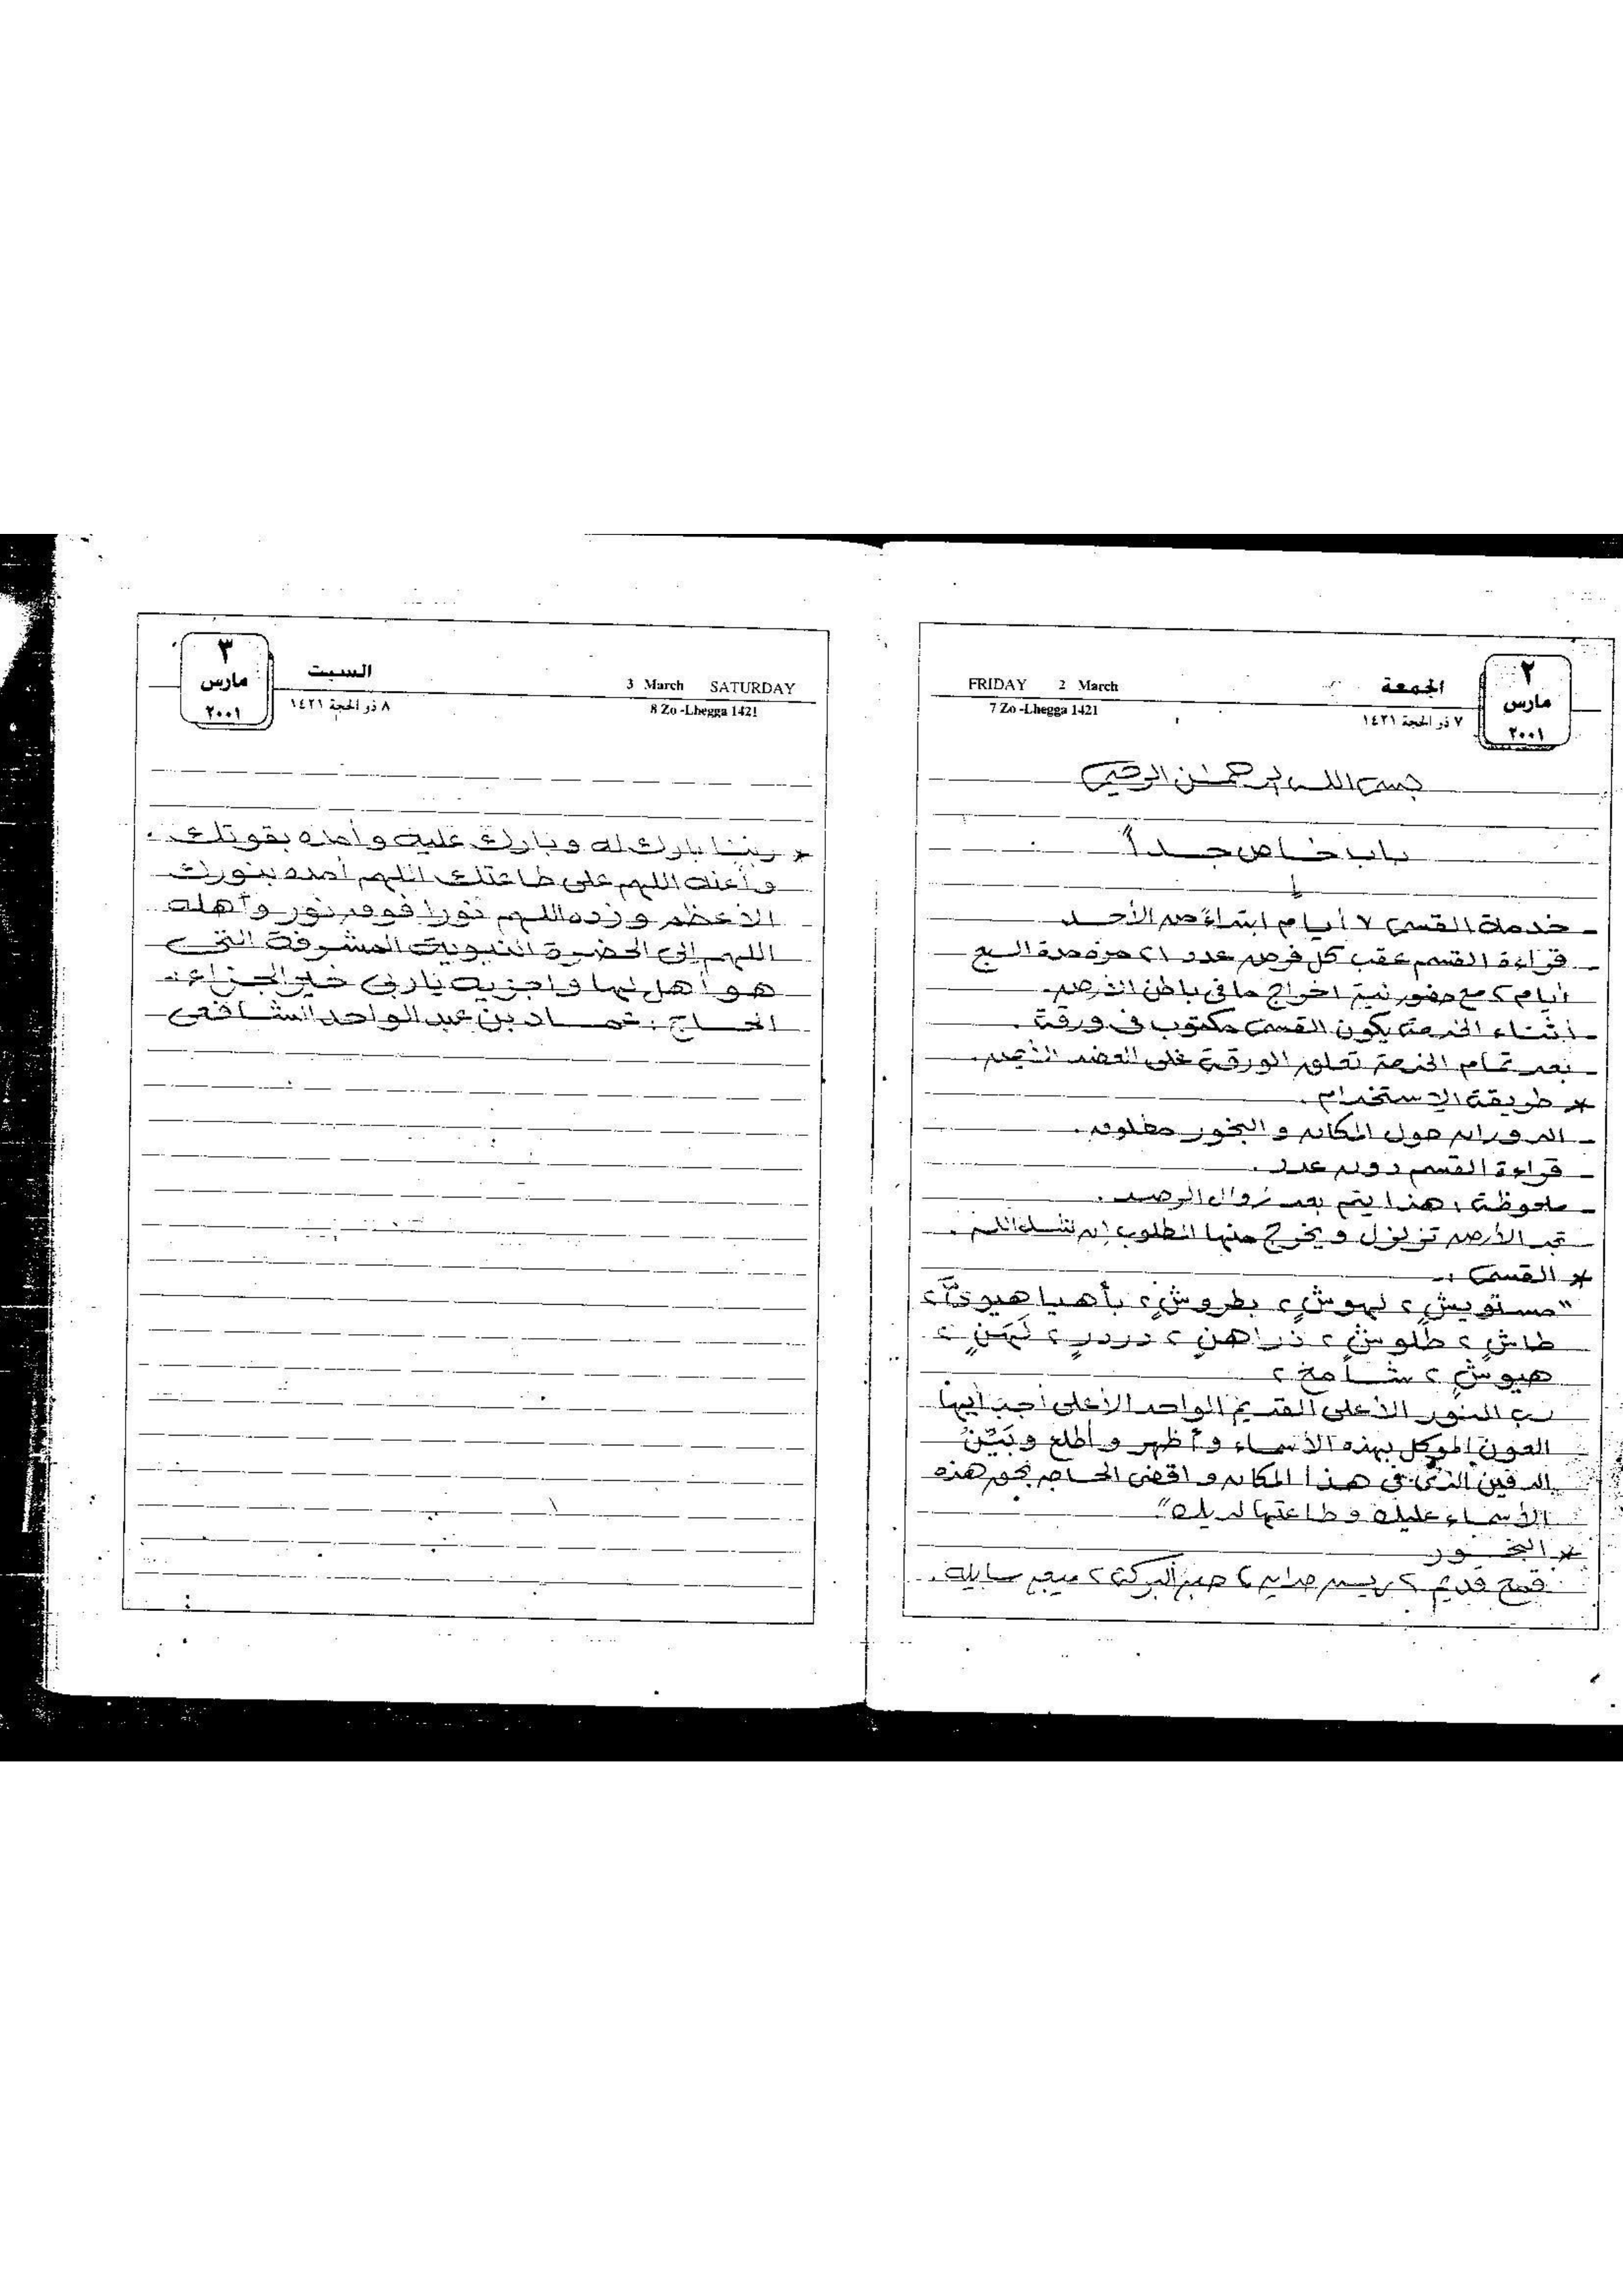 ٢
مارس
٢٠٠١
الجمعة
٧ ذو الحجة ١٤٢١
FRIDAY 2 March
7 Zo -Lhegga 1421
بسم الله الرحمٰن الرحيم
باب خاص جداً
- خدمة القسم ٧ أيام ابتداءً من الأحد
- قراءة القسم عقب كل فرض عدد ٢١ مرة مدة السبع
أيام ، مع حضور نية اخراج ما فى باطن الأرض.
- أثناء الخدمة يكون القسم مكتوب فى ورقة .
- بعد تمام الخدمة تعلق الورقة على العضد الأيمن.
* طريقة الإستخدام .
- الدوران حول المكان و البخور مطلوق .
- قراءة القسم دون عدد .
- ملحوظة : هذا يتم بعد زوال الرصد .
- تجد الأرض تزلزل و يخرج منها المطلوب إن شاء الله .
* القسم :-
"مستويشٍ ٢ نهوشٍ ٢ بطروشٍ ٢ بأهيا هيوهٍ ٢
طاشٍ ٢ طلوشٍ ٢ ذراهنٍ ٢ دردرٍ ٢ لَهَنٍ ٢
هيوشٍ ٢ شامخ ٢
رب النور الأعلى القديم الواحد الأعلى أجب أيها
العون الموكل بهذه الأسماء و أظهر و أطلع وبَيِّنْ
الدفين الذى فى هذا المكان و اقضى الحاجه بحق هذه
الأسماء عليك و طاعتها لديك"
* البخور
قمح قديم ، ، حبة البركة ، ميعه سايله .
٣
مارس
٢٠٠١
السبت
٨ ذو الحجة ١٤٢١
3 March SATURDAY
8 Zo -Lhegga 1421
* ربنا بارك له وبارك عليه و أمده بقوتك .
و أعنه اللهم على طاعتك اللهم أمده بنورك
الأعظم و زده اللهم نورا فوق نور و أهله
اللهم إلى الحضرة النبوية المشرفة التى
هو أهل لها و اجزيه ياربى خير الجزاء :-
الحاج : عماد بن عبد الواحد الشافعى